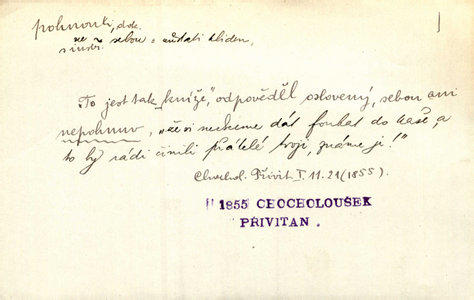 pohnouti, dok.
ne z sebou = zůstati kliden,
s instr.
"To jest tak, kníže," odpověděl oslovený, sebou ani
nepohnuv, "že si nechceme dát foukat do kaše, a
to by rádi činili přátelé tvoji, známe je!"
Chochol. Přivit. I. 11. 21 (1855).
1855 CHOCHOLOUŠEK
PŘIVITAN.